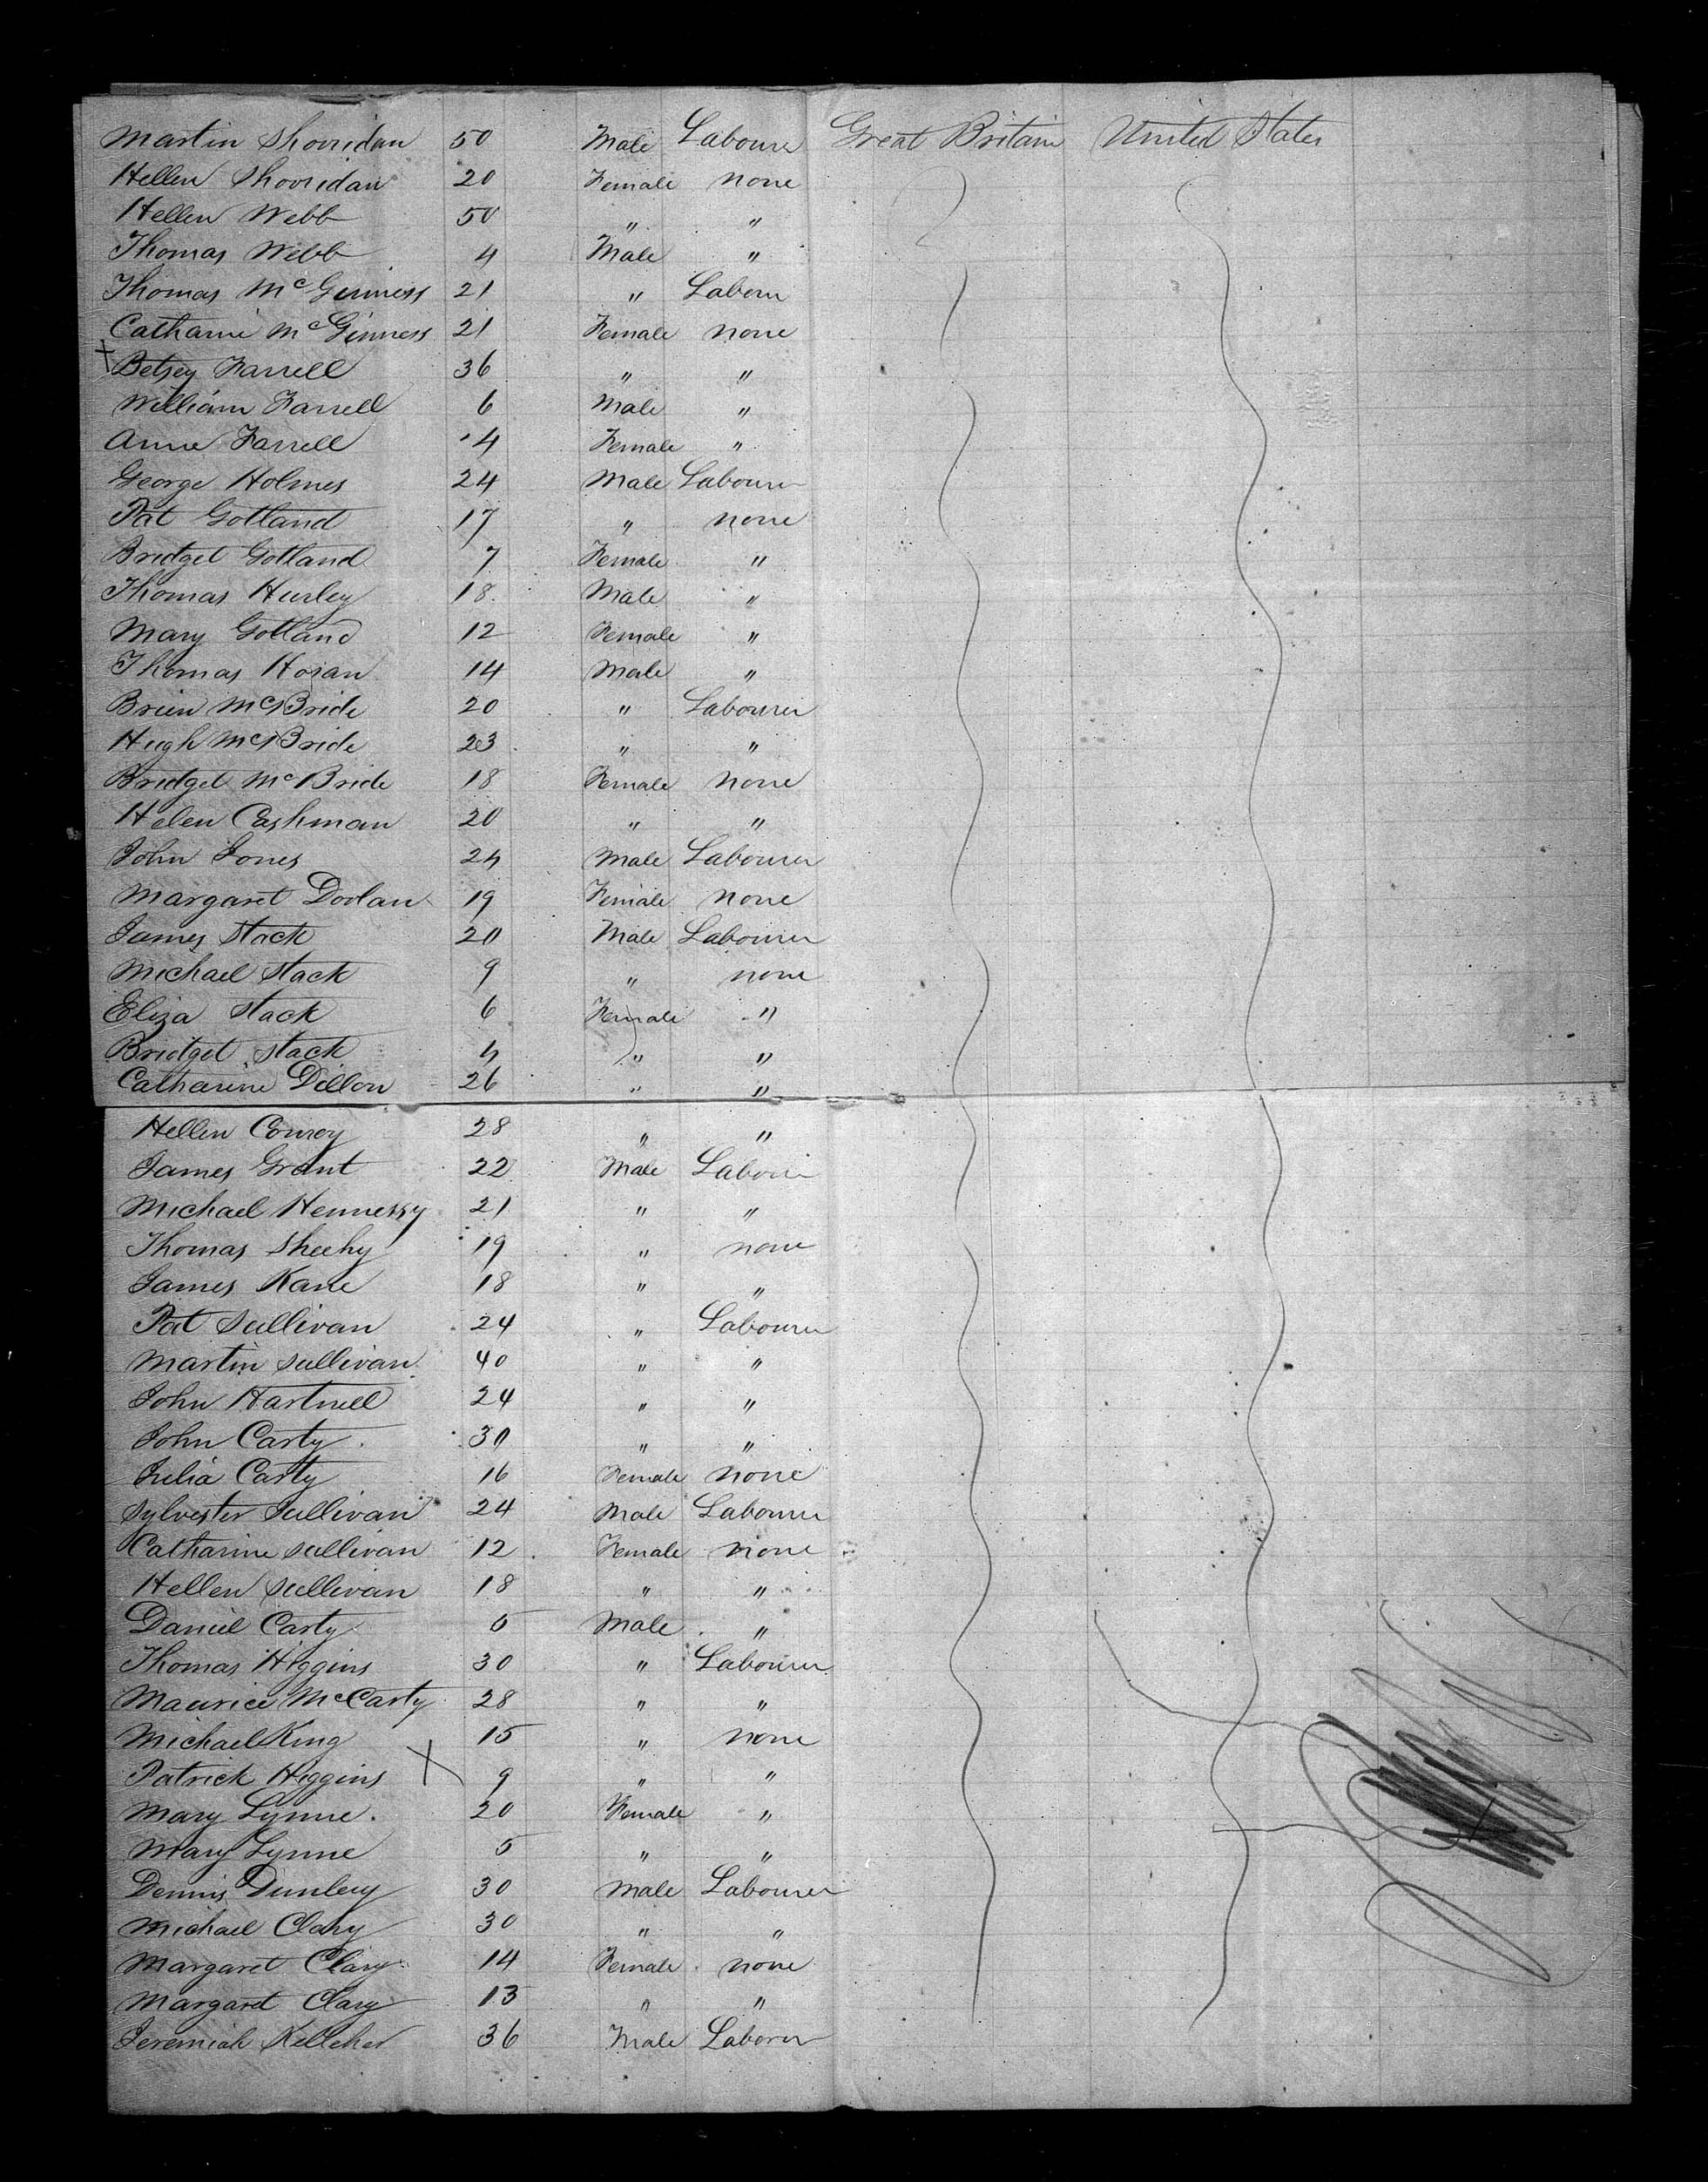 Martin Shorridan 50 Male Labourer Great Britain United States
Hellen Shorridan 20 Female none
Hellen Webb 50 " "
Thomas Webb 4 Male "
Thomas McGinness 21 " Laborer
Catharine McGinness 21 Female none
+ Betsey Farrell 36 " "
William Farrell 6 Male "
Anne Farrell 4 Female "
George Holmes 24 Male Labourer
Pat Gotland 17 " none
Bridget Gotland 7 Female "
Thomas Hurley 18 Male "
Mary Gotland 12 Female "
Thomas Horan 14 Male "
Brien McBride 20 " Labourer
Hugh McBride 23 " "
Bridget McBride 18 Female none
Helen Cashman 20 " "
John Jones 24 Male Labourer
Margaret Doolan 19 Female none
James Stack 20 Male Labourer
Michael Stack 9 " none
Eliza Stack 6 Female "
Bridget Stack 4 " "
Catharine Dillon 26 " "
Hellen Conroy 28 " "
James Grant 22 Male Labourer
Michael Hennessy 21 " "
Thomas Sheehy 19 " none
James Kane 18 " "
Pat Sullivan 24 " Labourer
Martin Sullivan 40 " "
John Hartnell 24 " "
John Carty 30 " "
Julia Carty 16 Female none
Sylvester Sullivan 24 Male Labourer
Catharine Sullivan 12 Female none
Hellen Sullivan 18 " "
Daniel Carty 5 Male "
Thomas Higgins 30 " Labourer
Maurice McCarty 28 " "
Michael King 15 " none
Patrick Higgins X 9 " "
Mary Lynne 20 Female "
Mary Lynne 5 " "
Dennis Dunlery 30 Male Labourer
Michael Clary 30 " "
Margaret Clary 14 Female none
Margaret Clary 13 " "
Jeremiah Kelleher 36 Male Laborer